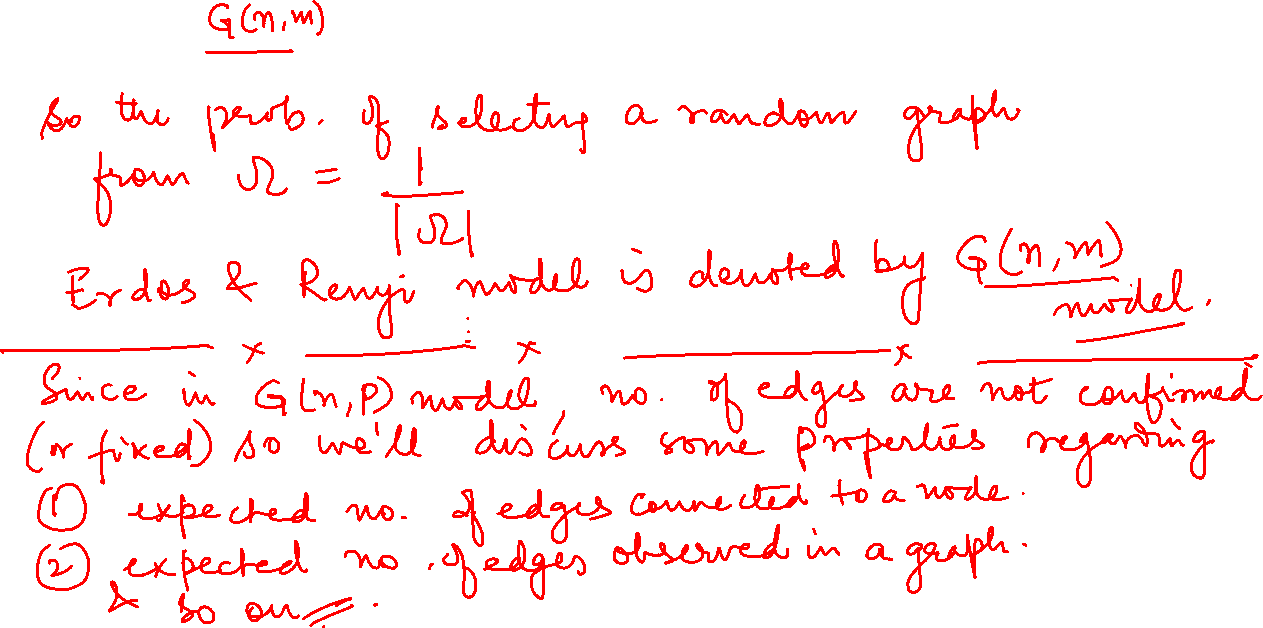 G(n,m)
so the prob. of selecting a random graph
from Ω = 1/|Ω|
Erdos & Renyi model is denoted by G(n,m)
model.
Since in G(n,p) model, no. of edges are not confirmed
(or fixed) so we'll discuss some properties regarding
① expected no. of edges connected to a node.
② expected no. of edges observed in a graph.
& so on.